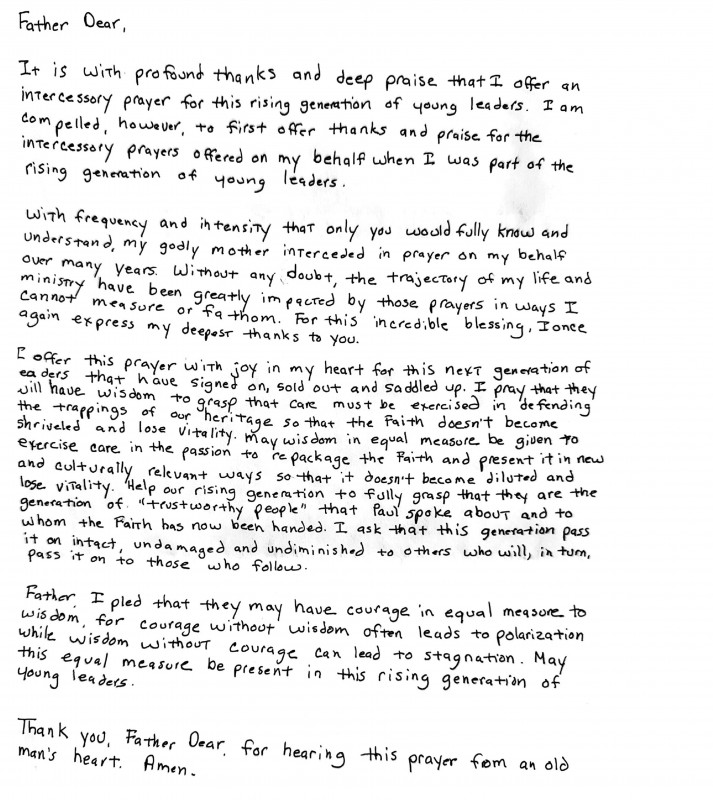 Father Dear,
It is with profound thanks and deep praise that I offer an
intercessory prayer for this rising generation of young leaders. I am
compelled, however, to first offer thanks and praise for the
intercessory prayers offered on my behalf when I was part of the
rising generation of young leaders.
With frequency and intensity that only you would fully know and
understand, my godly mother interceded in prayer on my behalf
over many years. Without any doubt, the trajectory of my life and
ministry have been greatly impacted by those prayers in ways I
cannot measure or fathom. For this incredible blessing, I once
again express my deepest thanks to you.
I offer this prayer with joy in my heart for this next generation of
eaders that have signed on, sold out and saddled up. I pray that they
will have wisdom to grasp that care must be exercised in defending
the trappings of our heritage so that the Faith doesn't become
shriveled and lose vitality. May wisdom in equal measure be given to
exercise care in the passion to repackage the Faith and present it in new
and culturally relevant ways so that it doesn't become diluted and
lose vitality. Help our rising generation to fully grasp that they are the
generation of "trustworthy people" that Paul spoke about and to
whom the Faith has now been handed. I ask that this generation pass
it on intact, undamaged and undiminished to others who will, in turn,
pass it on to those who follow.
Father, I pled that they may have courage in equal measure to
wisdom, for courage without wisdom often leads to polarization
while wisdom without courage can lead to stagnation. May
this equal measure be present in this rising generation of
young leaders.
Thank you, Father Dear, for hearing this prayer fom an old
man's heart. Amen.